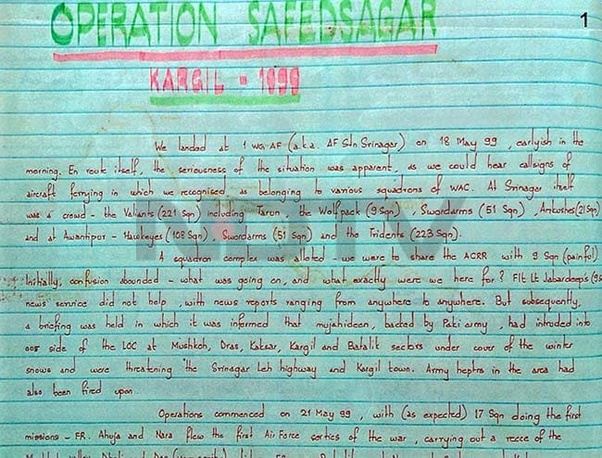 OPERATION SAFEDSAGAR
1
KARGIL - 1999
We landed at 1 WG AF (a.k.a. AF Stn Srinagar) on 18 May 99, earlyish in the
morning. En route itself, the seriousness of the situation was apparent, as we could hear callsigns of
aircraft ferrying in which we recognised as belonging to various squadrons of WAC. At Srinagar itself
was a crowd - the Valiants (221 Sqn) including Tarun, the Wolfpack (9 Sqn), Swordarms (51 Sqn), Ankushes (21 Sqn)
and at Awantipur - Hawkeyes (108 Sqn), Swordarms (51 Sqn) and the Tridents (223 Sqn).
A squadron complex was alloted - we were to share the ACRR with 9 Sqn (painful)
Initially, confusion abounded - what was going on, and what exactly were we here for? Flt Lt Jabardeep's (9
news service did not help, with news reports ranging from anywhere to anywhere. But subsequently,
a briefing was held in which it was informed that mujahideen, backed by Paki army, had intruded into
our side of the LOC at Mushkoh, Dras, Kaksar, Kargil and Batalik sectors under cover of the winter
snows and were threatening the Srinagar Leh highway and Kargil town. Army heptrs in the area had
also been fired upon.
Operations commenced on 21 May 99, with (as expected) 17 Sqn doing the first
missions - FR. Ahuja and Nara flew the first Air Force sorties of the war, carrying out a recce of the
NDTV